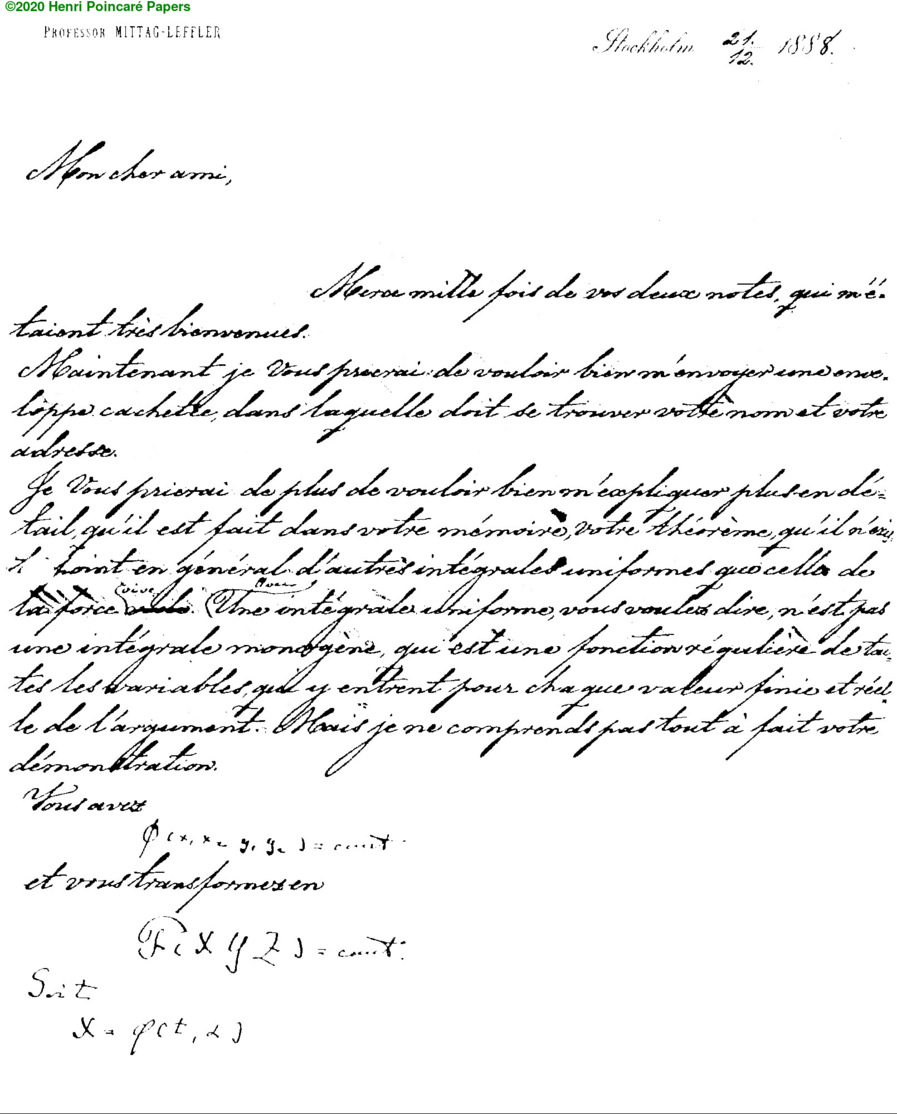 ©2020 Henri Poincaré Papers
PROFESSOR MITTAG-LEFFLER
Stockholm 21/12. 1888.
Mon cher ami,
Merce mille fois de vos deux notes, qui m'é-
taient très bienvenues.
Maintenant je Vous prierai de vouloir bien m'envoyer une enve-
loppe cachetée, dans laquelle doit se trouver votre nom et votre
adresse.
Je Vous prierai de plus de vouloir bien m'expliquer plus en dé-
tail, qu'il est fait dans votre mémoire, votre théorème, qu'il n'exis-
t point en général d'autres intégrales uniformes que celle de
la force vive. Une intégrale uniforme, vous voulez dire, n'est pas
une intégrale monogène, qui est une fonction régulière de tou-
tes les variables, qui y entrent pour chaque valeur finie et réel-
le de l'argument. Mais je ne comprends pas tout à fait votre
démonstration.
Vous avez
φ(x₁ x₂ y₁ y₂) = const.
et vous transformez en
F(X Y Z) = const.
Soit
X = φ(t, α)